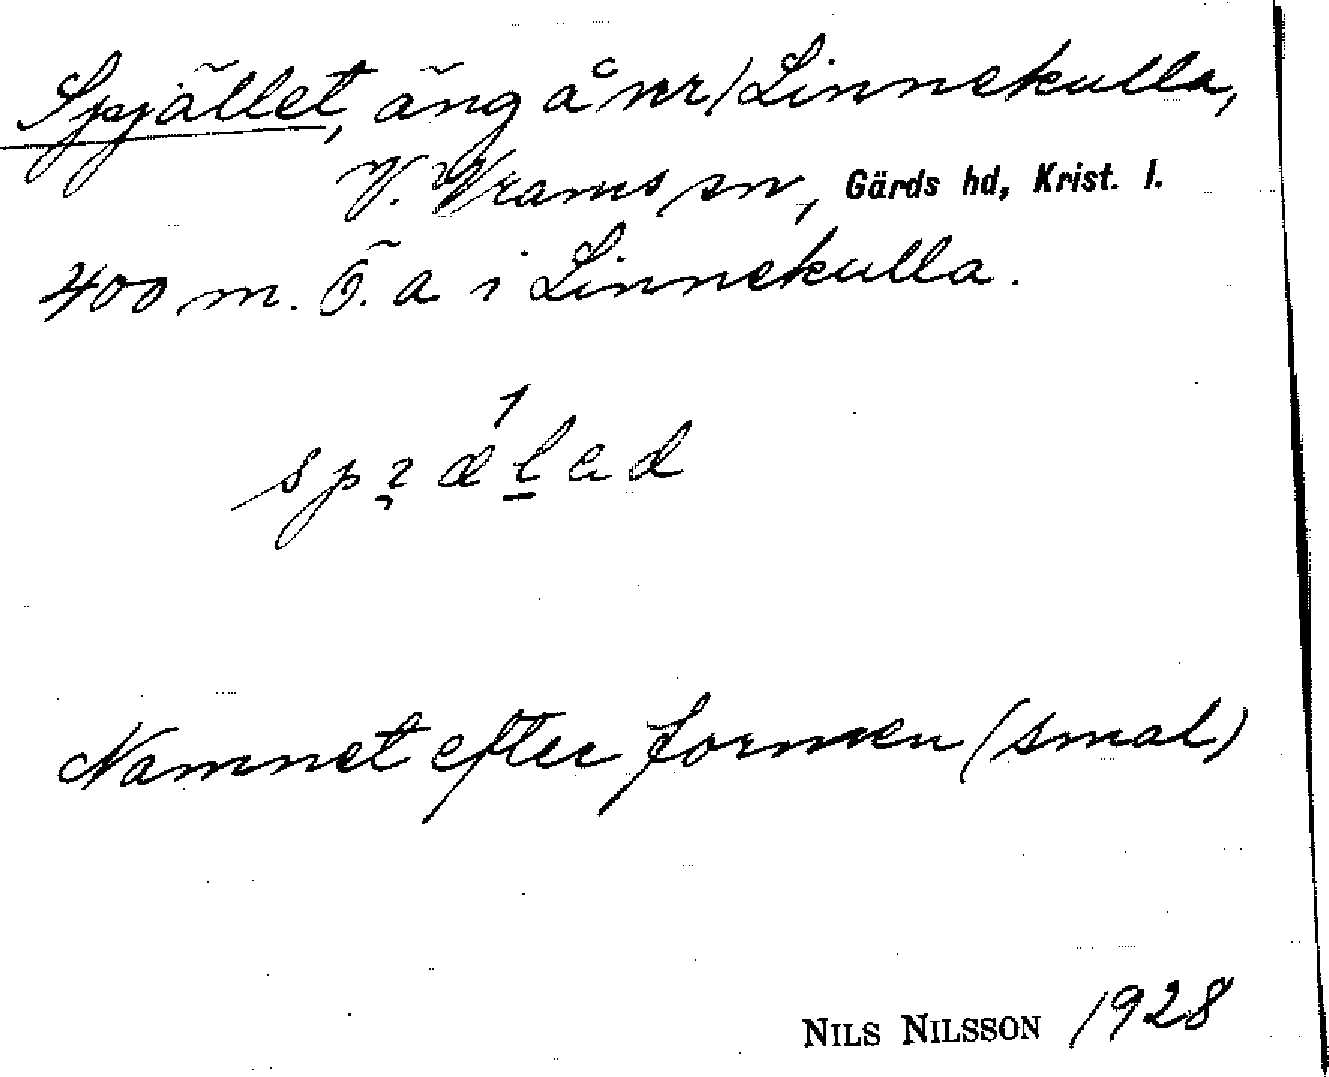 Spjället, äng å nr 1 Linnekulla,
V. Vrams sn, Gärds hd, Krist. l.
400 m. Ö. a i Linnekulla.
Namnet efter formen (smal)
NILS NILSSON 1928